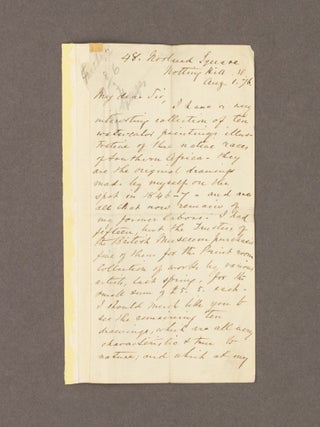 48. Norland Square
Notting Hill W.
Aug. 1. 76
My dear Sir,
I have a very
interesting collection of ten
water-color paintings illus-
trative of the native races
of Southern Africa - they
are the original drawings
made by myself on the
spot in 1846-7 - and are
all that now remains of
my former labors. I had
fifteen, but the Trustees of
the British Museum purchased
five of them for the Print room
collection of works by various
artists, last spring, for the
small sum of £5. 5. each.
I should much like you to
see the remaining ten
drawings, which are all very
characteristic & true to
nature; and which at my